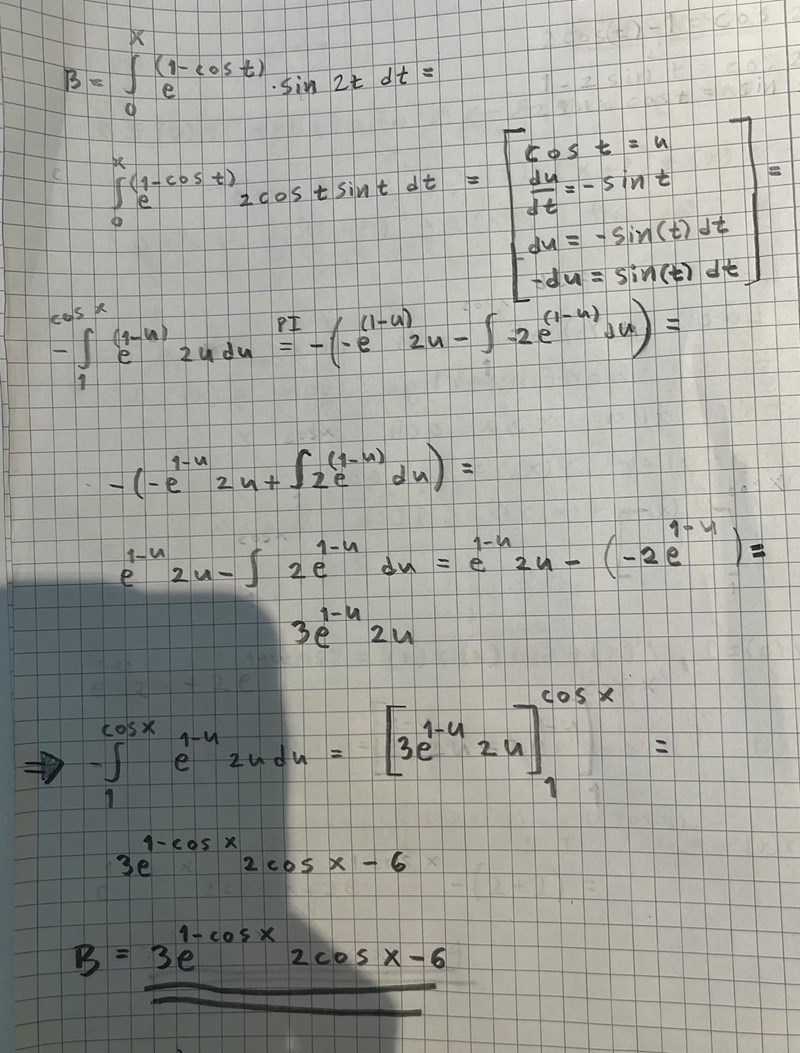 B = ∫₀ˣ e^(1-cos t) · sin 2t dt =
∫₀ˣ e^(1-cos t) 2 cos t sin t dt = [ cos t = u
du/dt = - sin t
du = - sin(t) dt
-du = sin(t) dt ] =
- ∫₁^cos x e^(1-u) 2u du PI = -(-e^(1-u) 2u - ∫ -2e^(1-u) du) =
-(-e^1-u 2u + ∫ 2e^(1-u) du) =
e^1-u 2u - ∫ 2e^1-u du = e^1-u 2u - (-2e^1-u) =
3e^1-u 2u
⇒ - ∫₁^cos x e^1-u 2u du = [3e^1-u 2u]₁^cos x =
3e^1-cos x 2 cos x - 6
B = 3e^1-cos x 2 cos x - 6